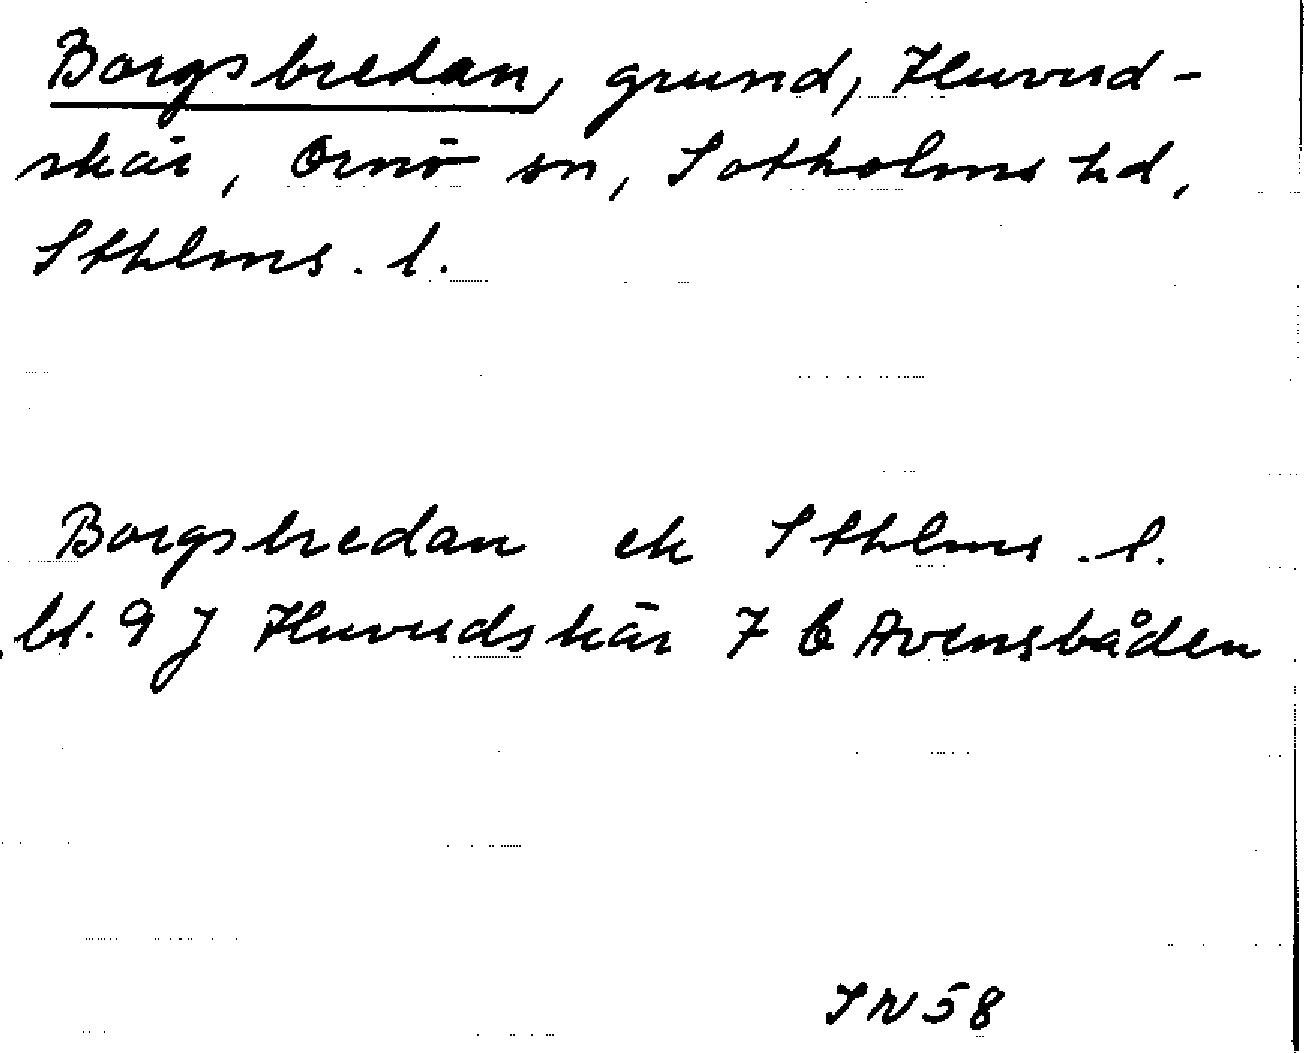 Borgsbredan, grund, Huvud-
skär, Ornö sn, Sotholms hd,
Sthlms. l.
Borgsbredan ek Sthlms. l.
bl. 9 J Huvudskär 7 b Avensbåden
IN 58